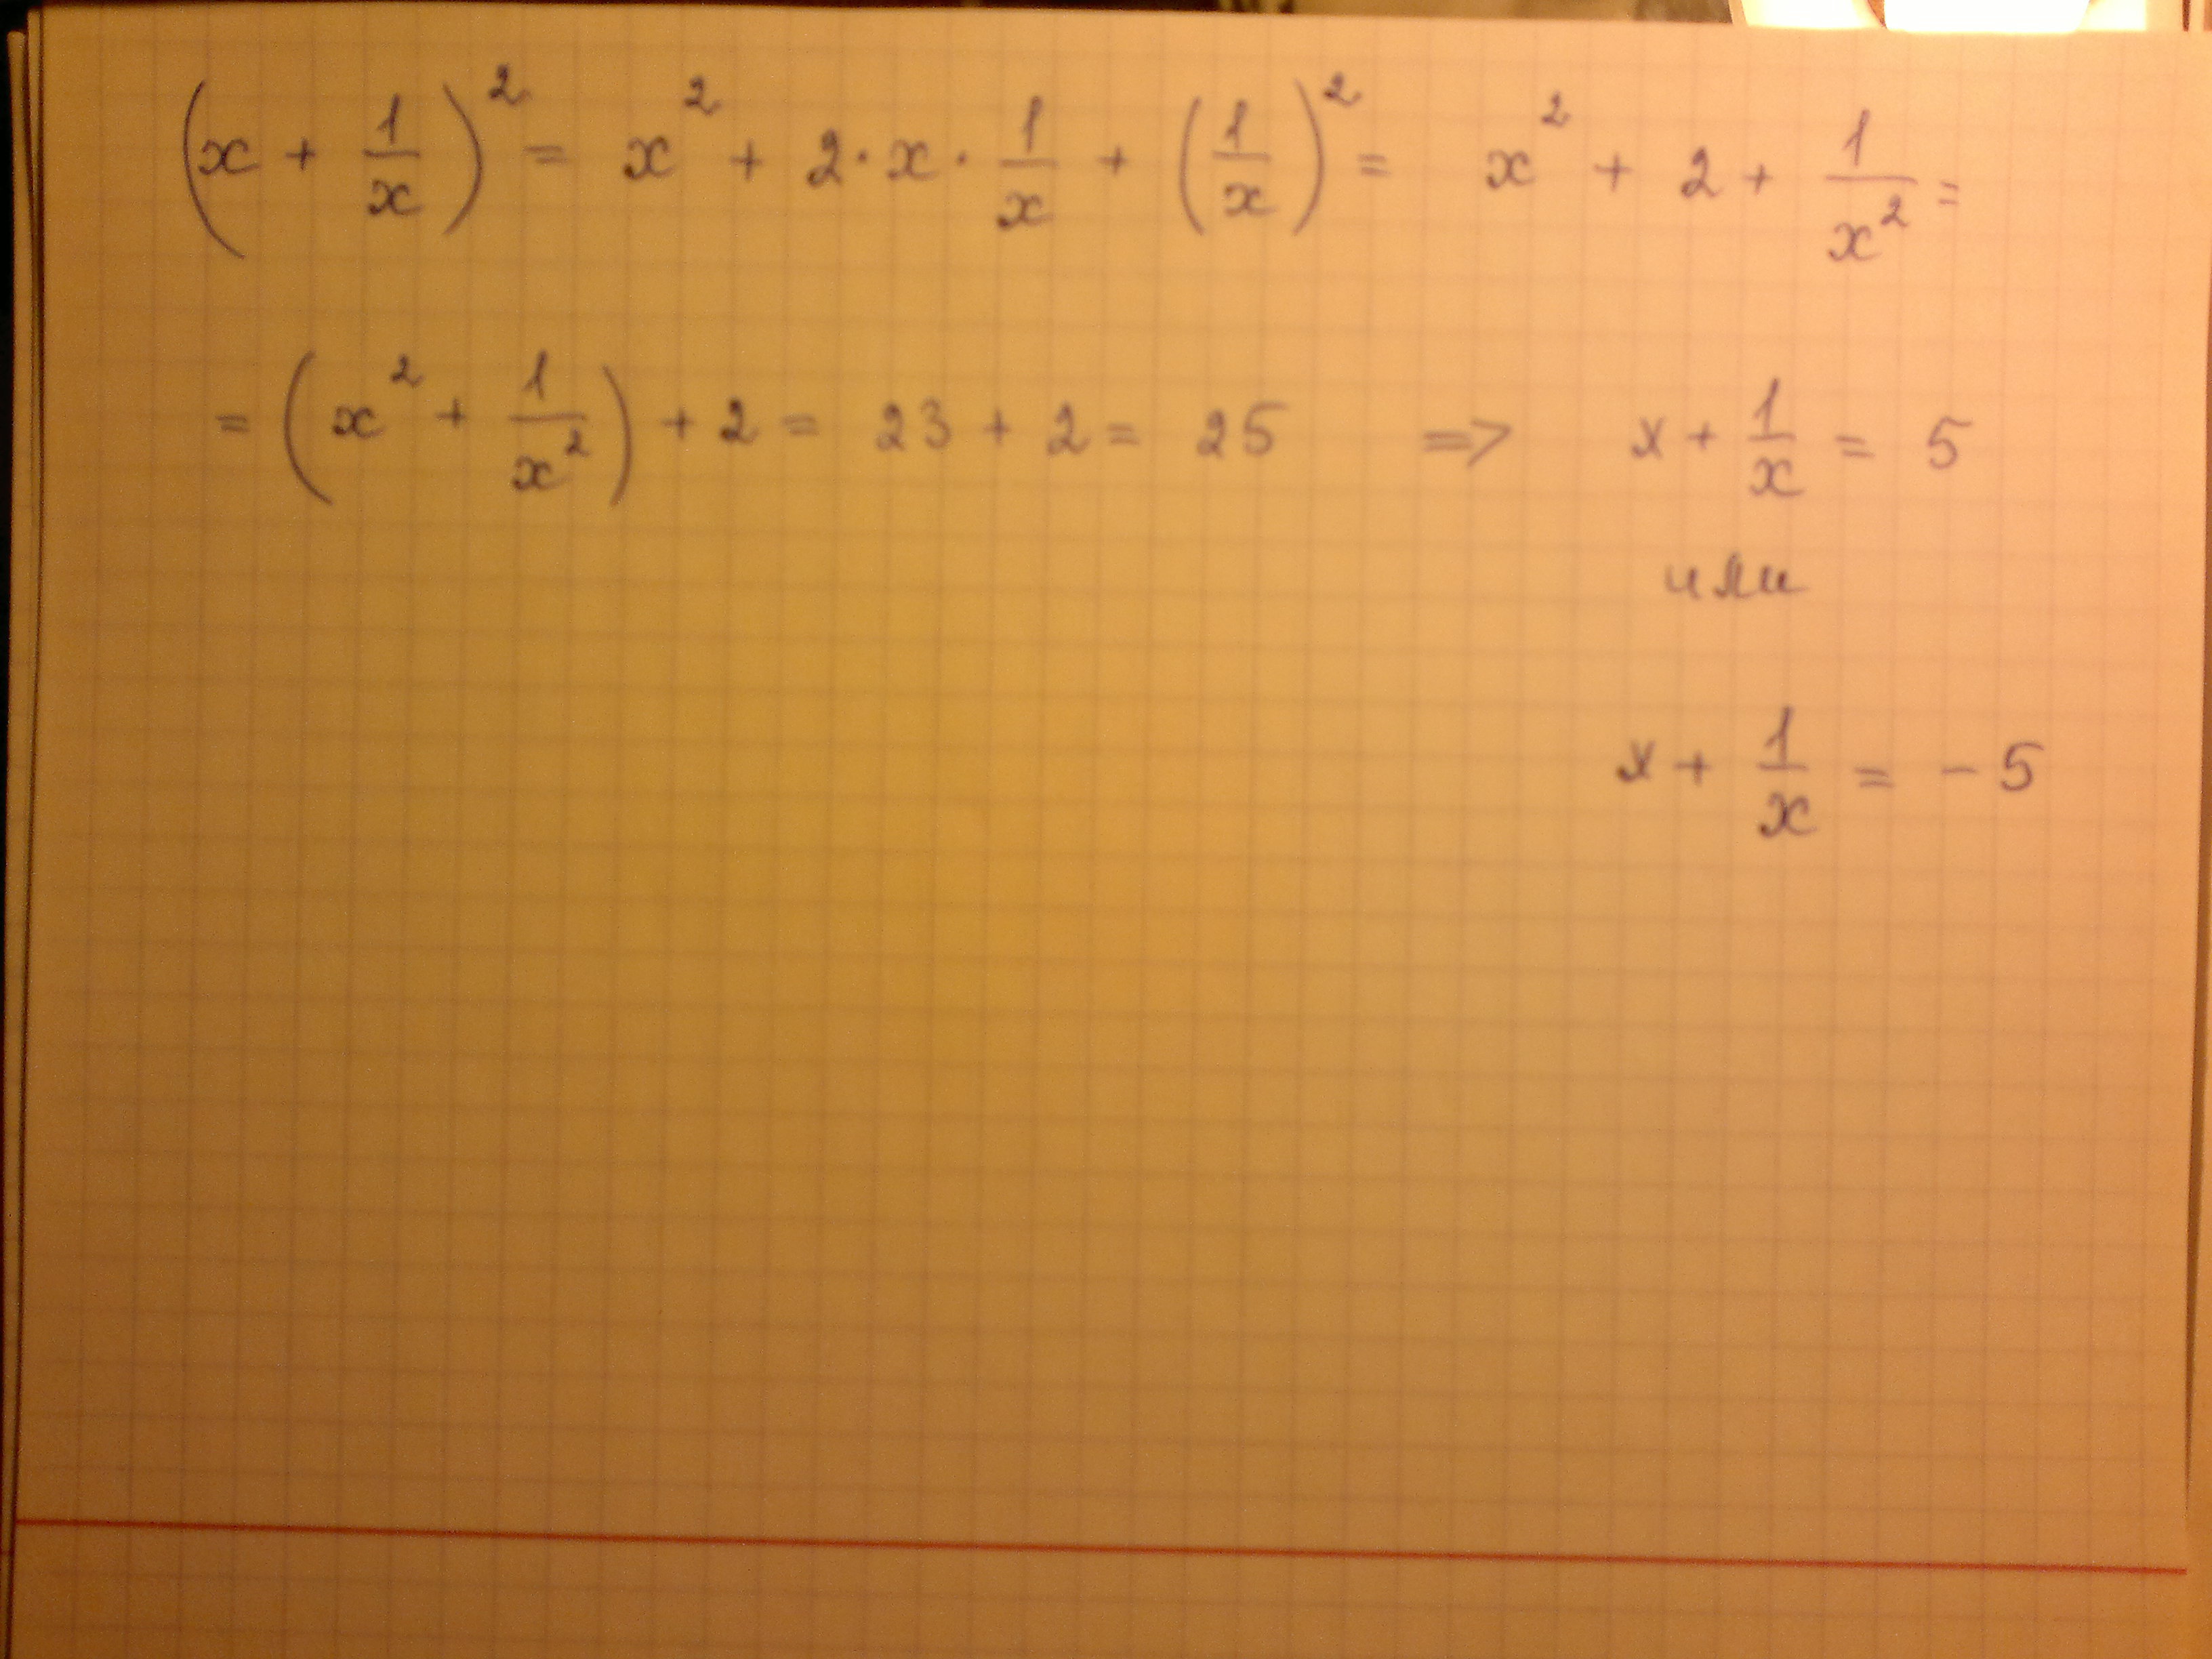 (x + 1/x)² = x² + 2·x·1/x + (1/x)² = x² + 2 + 1/x² =
= (x² + 1/x²) + 2 = 23 + 2 = 25 => x + 1/x = 5
или
x + 1/x = -5